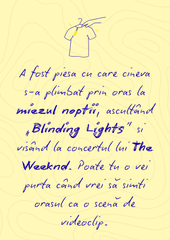 A fost piesa cu care cineva
s-a plimbat prin oraș la
miezul nopții, ascultând
„Blinding Lights” și
visând la concertul lui The
Weeknd. Poate tu o vei
purta când vrei să simți
orașul ca o scenă de
videoclip.